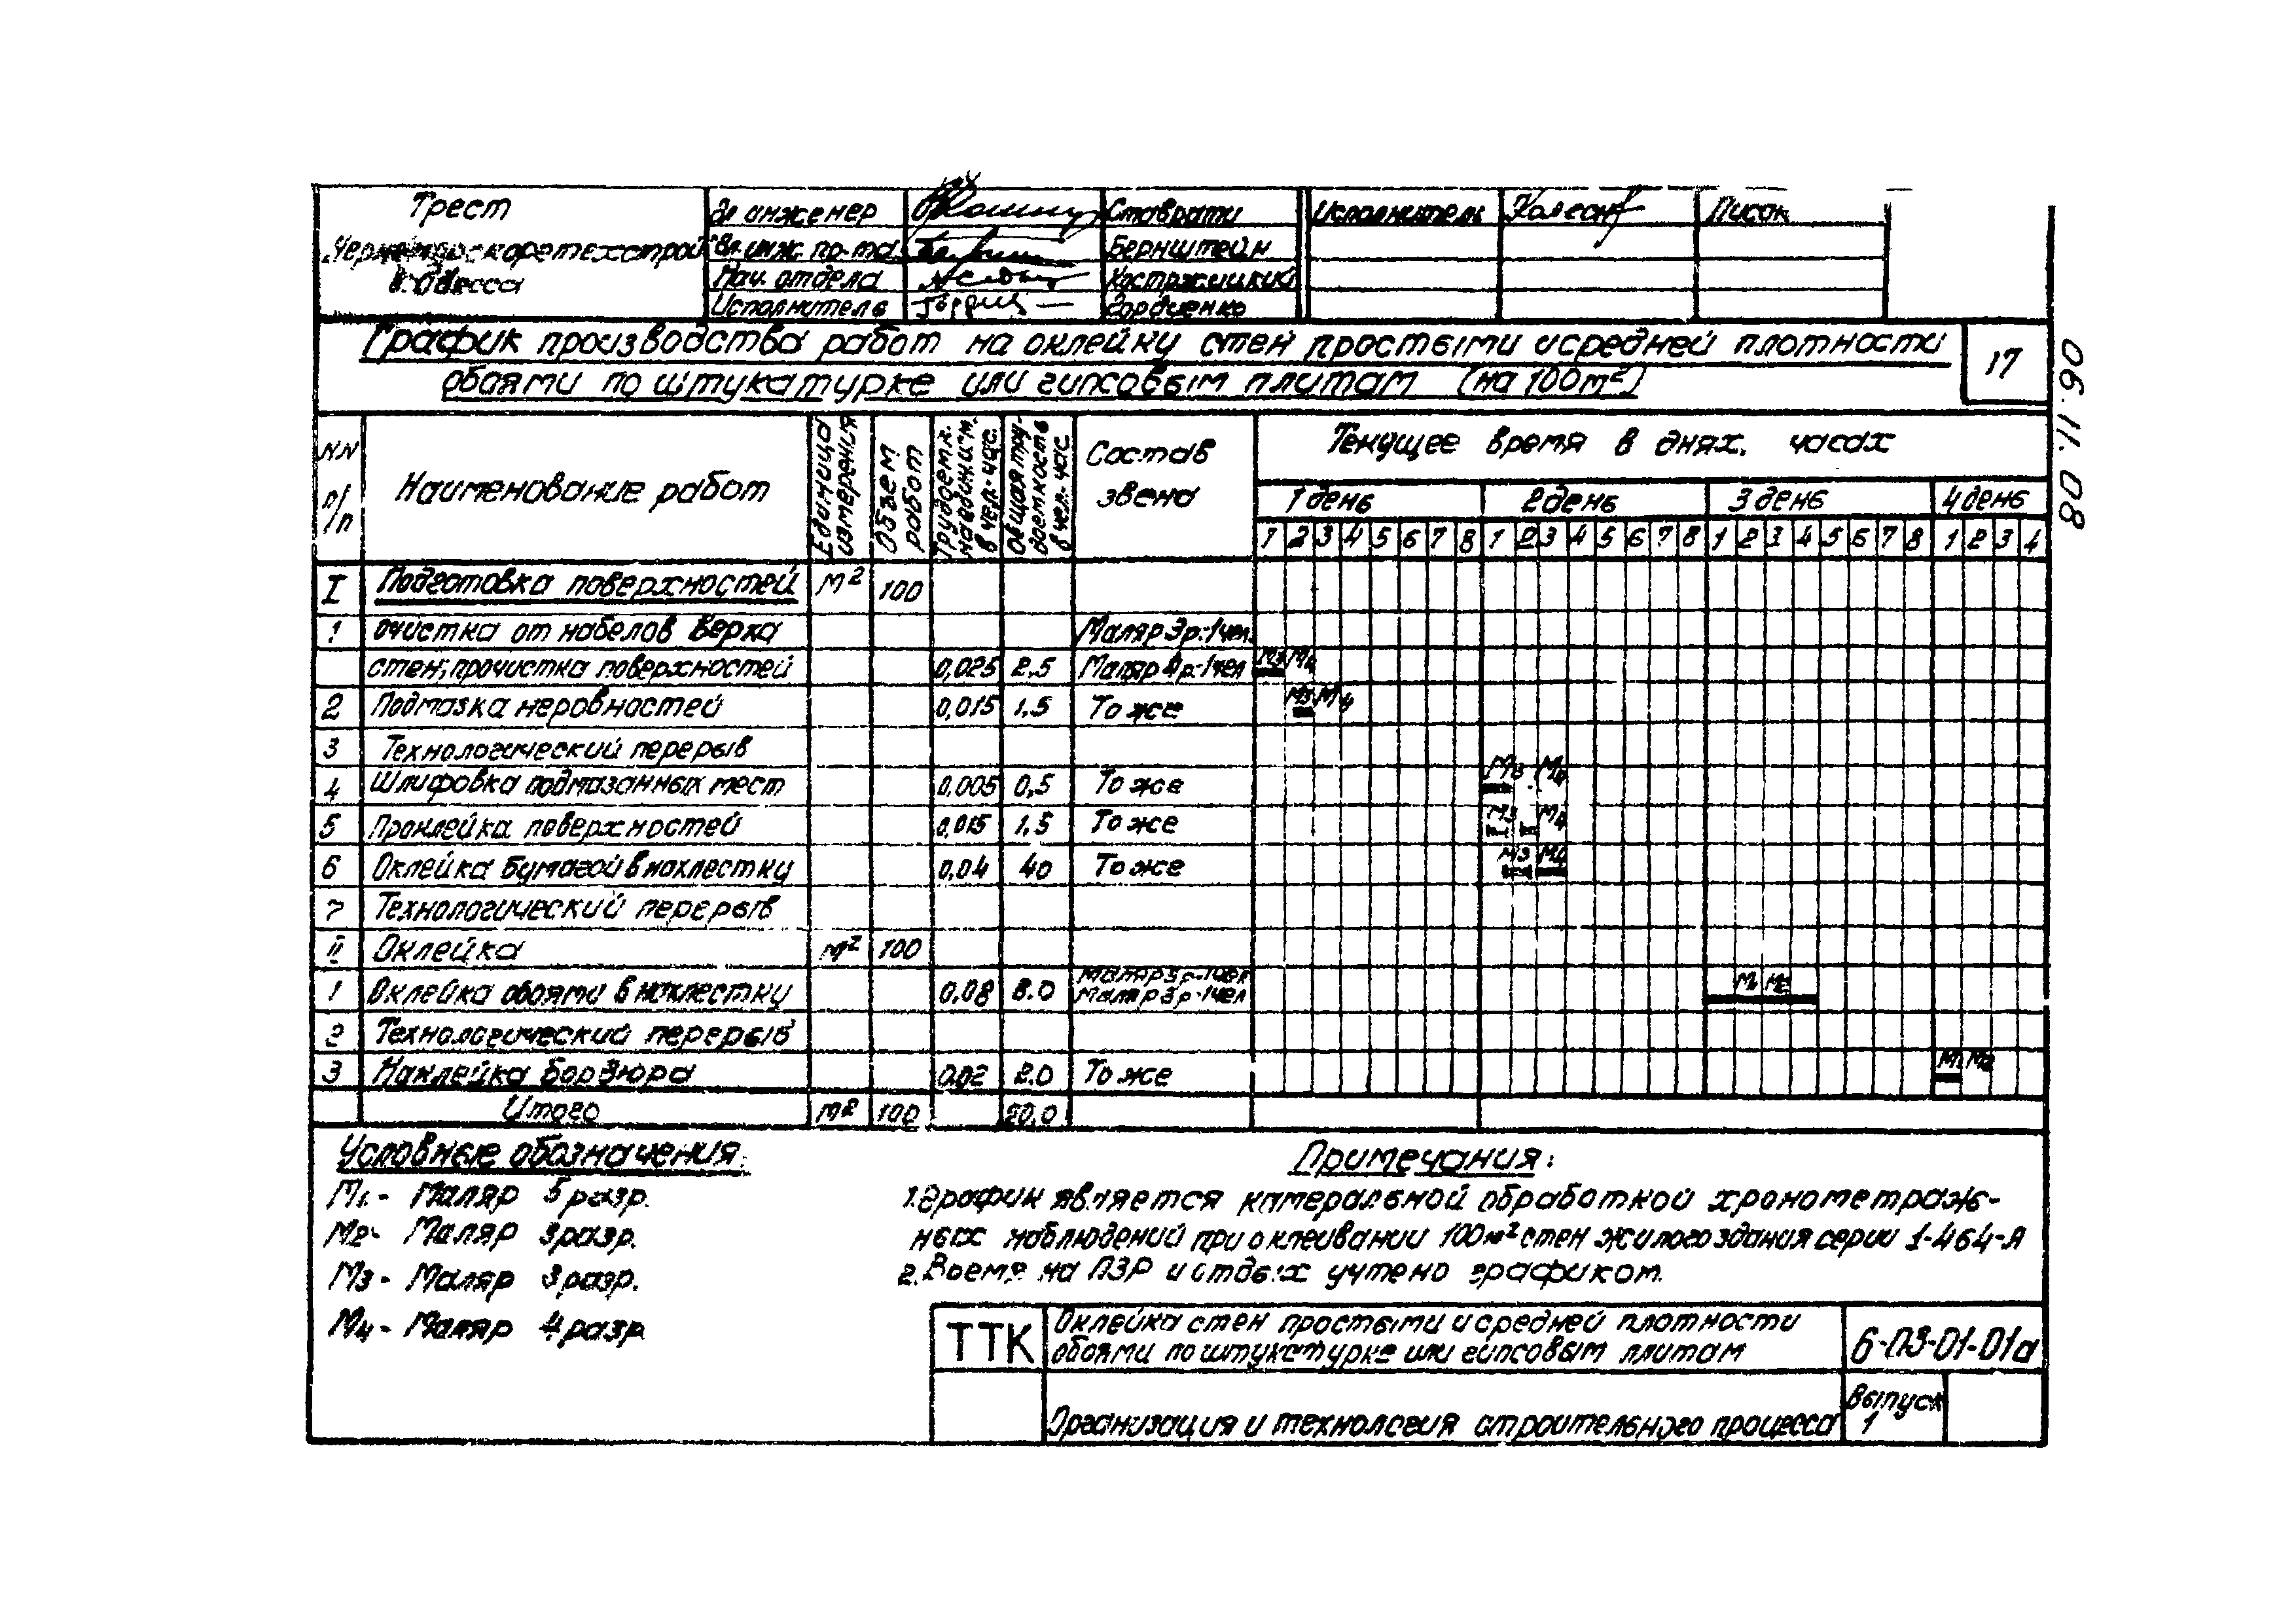 Трест
Черметпроскоретехстрой
г. Одесса
Гл инженер Ставрати Исполнитель Писок
Гл. инж. пр-та Бернштейн
Нач. отдела
Исполнитель Гордиенко
График производства работ на оклейку стен простыми и средней плотности
обоями по штукатурке или гипсовым плитам (на 100 м²)
17
06.11.08
NN п/п
Наименование работ
Единица измерения
Объем работ
Трудоемк. на един. изм. в чел.-час.
Общая трудоемкость в чел.-час
Состав звена
Текущее время в днях, часах
1 день 2 день 3 день 4 день
1 2 3 4 5 6 7 8 1 2 3 4 5 6 7 8 1 2 3 4 5 6 7 8 1 2 3 4
I Подготовка поверхностей м² 100
1 Очистка от набелов верха Маляр 3р.-1чел.
стен; прочистка поверхностей 0,025 2,5 Маляр 4р.-1чел М3 М4
2 Подмазка неровностей 0,015 1,5 То же М3 М4
3 Технологический перерыв
4 Шлифовка подмазанных мест 0,005 0,5 То же М3 М4
5 Проклейка поверхностей 0,015 1,5 То же М3 М4
6 Оклейка бумагой в нахлестку 0,04 40 То же М3 М4
7 Технологический перерыв
II Оклейка м² 100
1 Оклейка обоями в нахлестку 0,08 8.0 Маляр 5р-1чел Маляр 3р-1чел М1 М2
2 Технологический перерыв
3 Наклейка бордюра 0,02 2.0 То же М1 М2
Итого м² 100 20,0
Условные обозначения:
М1- Маляр 5 разр.
М2- Маляр 3 разр.
М3- Маляр 3 разр.
М4- Маляр 4 разр
Примечания:
1. График является камеральной обработкой хронометраж-
ных наблюдений при оклеивании 100 м² стен жилого здания серии 1-464-А
2. Время на ПЗР и отдых учтено графиком.
ТТК
Оклейка стен простыми и средней плотности
обоями по штукатурке или гипсовым плитам
6-03-01-01а
Организация и технология строительного процесса
Выпуск
1